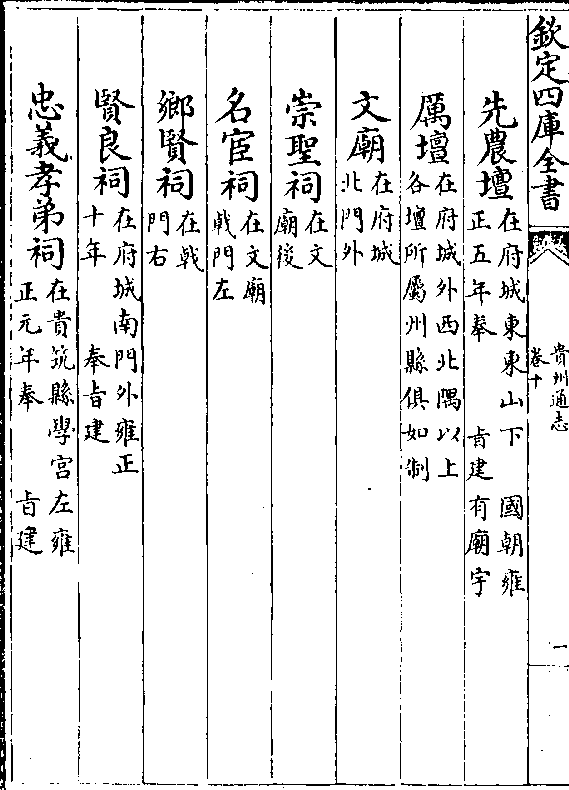 欽定四庫全書
貴州通志
卷十
一
先農壇在府城東東山下 國朝雍
正五年奉 旨建有廟宇
厲壇在府城外西北隅以上
各壇所屬州縣俱如制
文廟在府城
北門外
崇聖祠在文
廟後
名宦祠在文廟
戟門左
鄉賢祠在戟
門右
賢良祠在府城南門外雍正
十年 奉旨建
忠義孝弟祠在貴筑縣學宮左雍
正元年奉 旨建